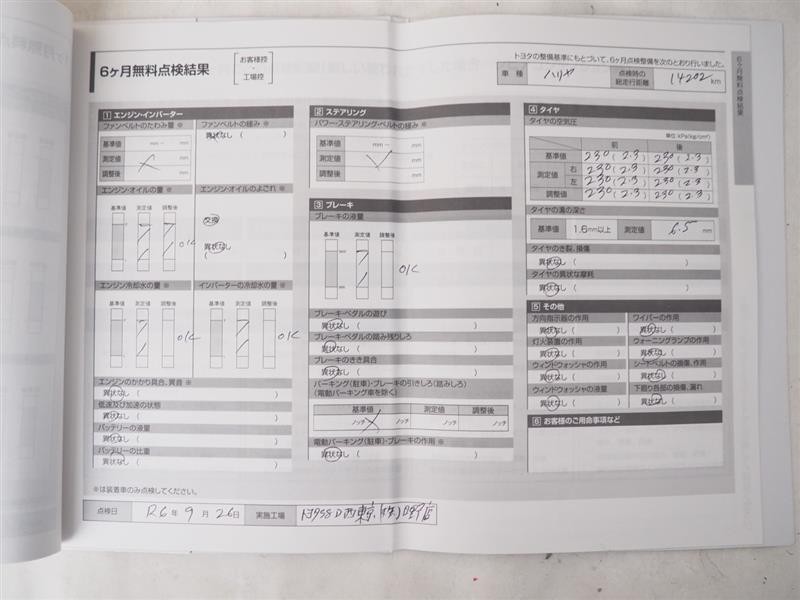 6ヶ月無料点検結果
お客様控
・
工場控
トヨタの整備基準にもとづいて、6ヶ月点検整備を次のとおり行いました。
車 種 ハリヤ 点検時の総走行距離 14202 km
6ヶ月無料点検結果
1 エンジン・インバーター
ファンベルトのたわみ量 ※
基準値 mm ～ mm
測定値 mm
調整後 mm
ファンベルトの緩み ※
異状なし ( )
エンジン・オイルの量 ※
基準値 測定値 調整後
OK
エンジン・オイルのよごれ ※
交換
異状なし
( )
エンジン冷却水の量 ※
基準値 測定値 調整後
OK
インバーターの冷却水の量 ※
基準値 測定値 調整後
OK
エンジンのかかり具合、異音 ※
異状なし ( )
低速及び加速の状態
異状なし ( )
バッテリーの液量
異状なし ( )
バッテリーの比重
異状なし ( )
2 ステアリング
パワー・ステアリング・ベルトの緩み ※
基準値 mm ～ mm
測定値 mm
調整後 mm
3 ブレーキ
ブレーキの液量
基準値 測定値 調整後
OK
ブレーキ・ペダルの遊び
異状なし ( )
ブレーキ・ペダルの踏み残りしろ
異状なし ( )
ブレーキのきき具合
異状なし ( )
パーキング(駐車)・ブレーキの引きしろ(踏みしろ)
(電動パーキング車を除く)
基準値 測定値 調整後
ノッチ ノッチ ノッチ ノッチ
電動パーキング(駐車)・ブレーキの作用 ※
異状なし ( )
4 タイヤ
タイヤの空気圧
単位:kPa(kg/cm²)
前 後
基準値 230 (2.3) 230 (2.3)
測定値 右 230 (2.3) 230 (2.3)
左 230 (2.3) 230 (2.3)
調整値 230 (2.3) 230 (2.3)
タイヤの溝の深さ
基準値 1.6mm以上 測定値 6.5 mm
タイヤのき裂、損傷
異状なし ( )
タイヤの異状な摩耗
異状なし ( )
5 その他
方向指示器の作用
異状なし ( )
ワイパーの作用
異状なし ( )
灯火装置の作用
異状なし ( )
ウォーニングランプの作用
異状なし ( )
ウィンドウォッシャの作用
異状なし ( )
シートベルトの損傷、作用
異状なし ( )
ウィンドウォッシャの液量
異状なし ( )
下廻り各部の損傷、漏れ
異状なし ( )
6 お客様のご用命事項など
※は装着車のみ点検してください。
点検日 R6 年 9 月 26 日 実施工場